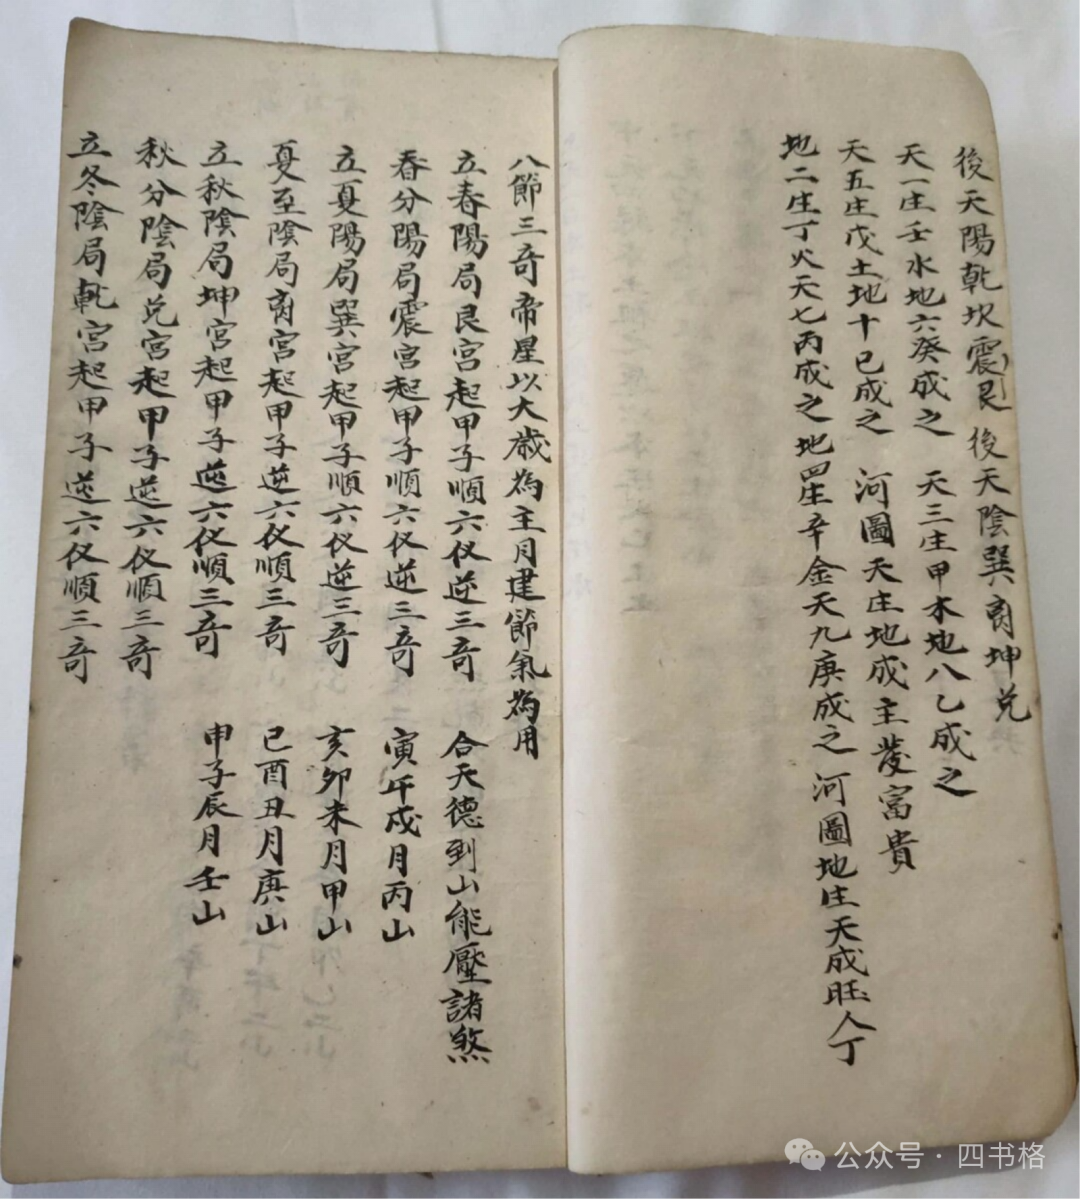 後天陽乾坎震艮 後天陰巽离坤兌
天一生壬水地六癸成之 天三生甲木地八乙成之
天五生戊土地十已成之 河圖天生地成主發富貴
地二生丁火天七丙成之地四生辛金天九庚成之 河圖地生天成旺人丁
八節三奇帝星以大歲為主月建節氣為用
立春陽局艮宮起甲子順六仪逆三奇 合天德到山能壓諸煞
春分陽局震宮起甲子順六仪逆三奇 寅午戌月丙山
立夏陽局巽宮起甲子順六仪逆三奇 亥卯未月甲山
夏至陰局离宮起甲子逆六仪順三奇 巳酉丑月庚山
立秋陰局坤宮起甲子逆六仪順三奇 申子辰月壬山
秋分陰局兌宮起甲子逆六仪順三奇
立冬陰局乾宮起甲子逆六仪順三奇
公众号·四书格